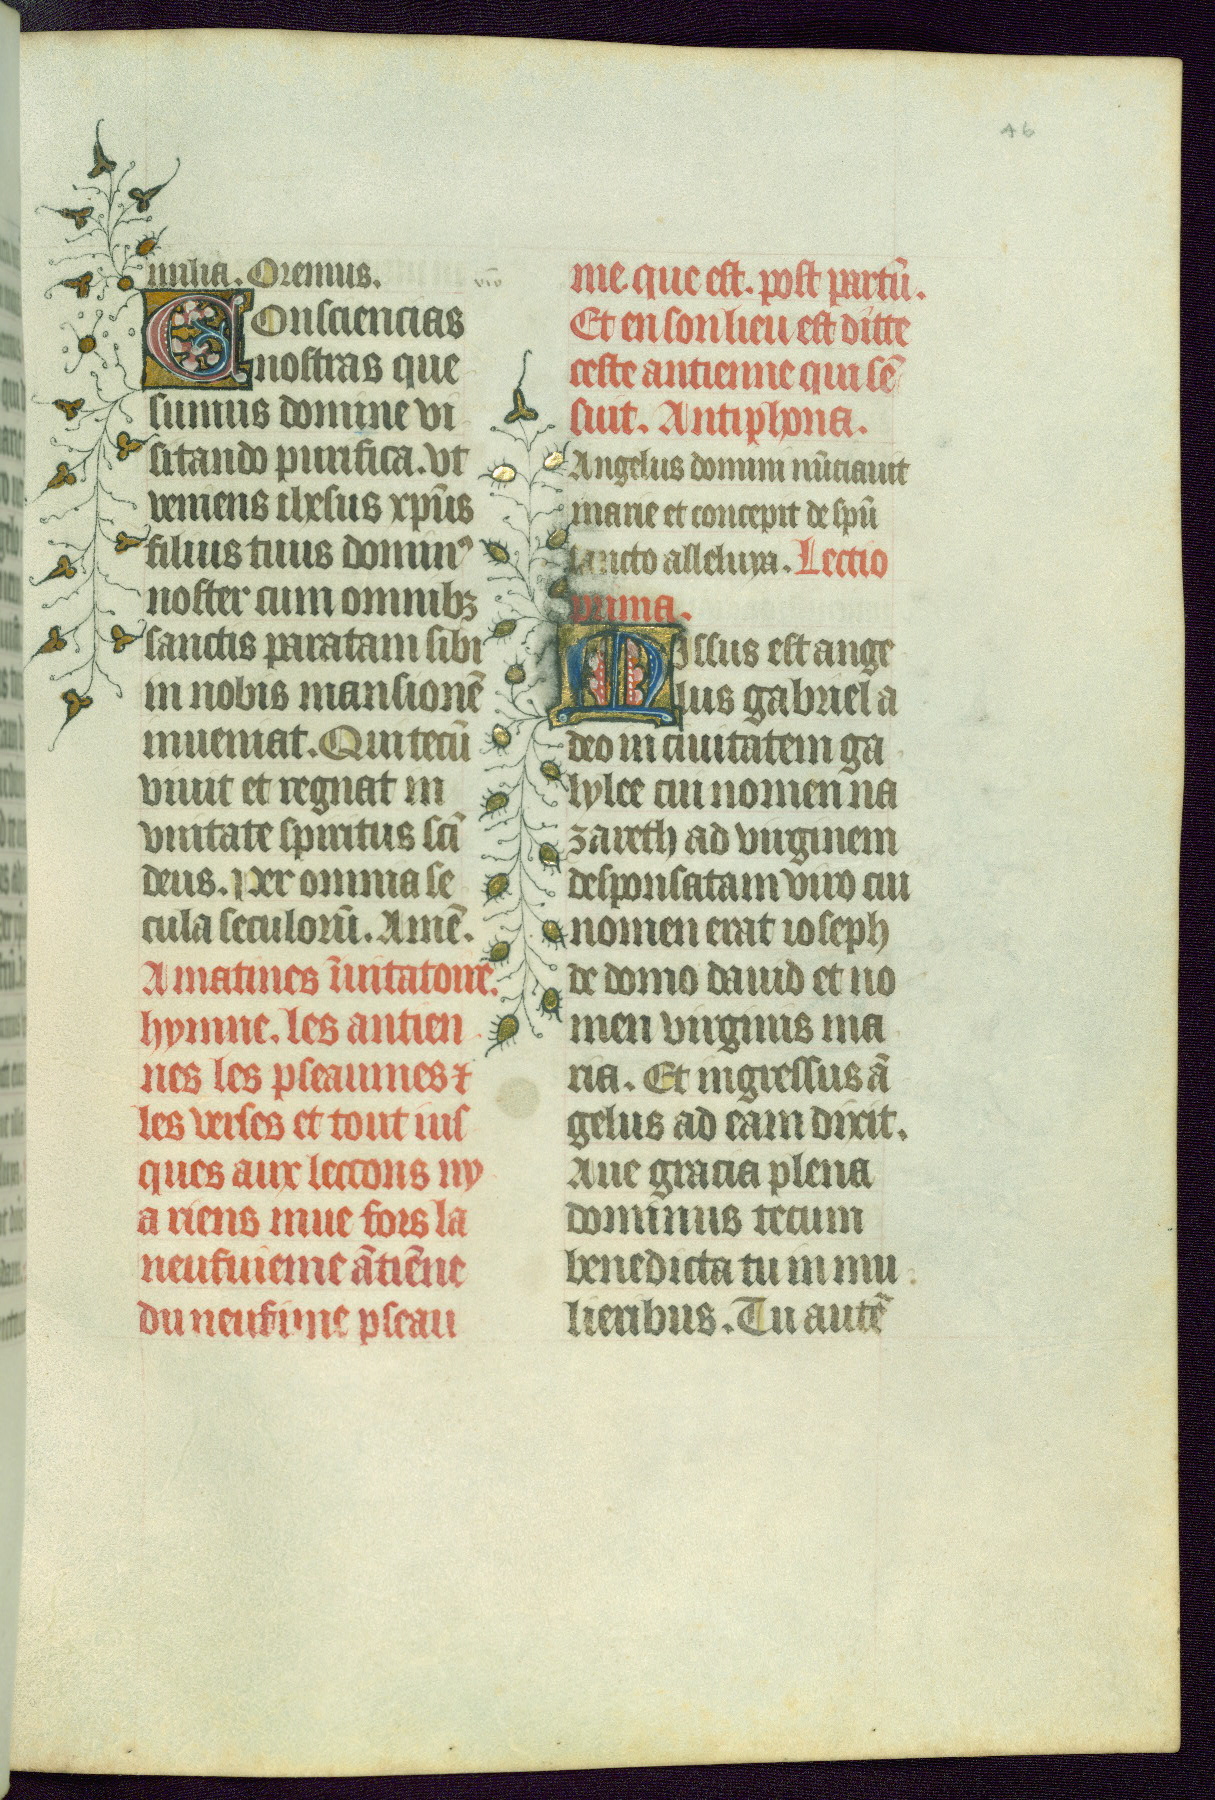 46
milia. Oremus.
Consciencias
nostras que
sumus domine vi
sitando purifica. vt
veniens ihesus xp̄us
filius tuus domin⁹
noster cum omnibꝫ
sanctis paratam sibi
in nobis mansionē
inueniat. Qui tecū
viuit et regnat in
vnitate spiritus scī
deus. Per omnia se
cula seculorū. Amē.
A matines īuitatoire.
hymne. les antien
nes les pseaumes ⁊
les verses et tout ius
ques aux leccons ny
a riens mue fors la
neufuieme ātiēne
du neufime pseau
me. que est. post partū.
Et en son lieu est ditte
ceste antienne qui sē
suit. Antiphona.
Angelus domini nūciauit
marie et concepit de spū
sancto alleluya. Lectio
prima.
Missus est ange
lus gabriel a
deo in ciuitatem ga
lylee cui nomen na
zareth ad virginem
desponsatam viro cui
nomen erat ioseph
de domo dauid et no
men virginis ma
ria. Et ingressus ā
gelus ad eam dixit.
Aue gracia plena
dominus tecum
benedicta tu in mu
lieribus. Tu autē